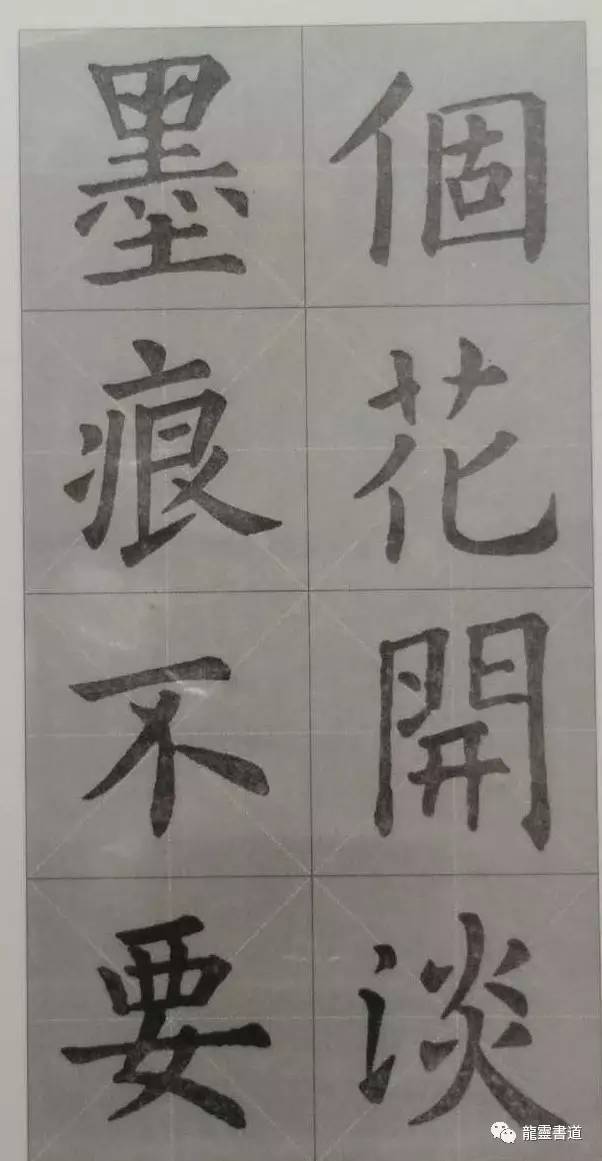 個花開淡
墨痕不要
龍靈書道